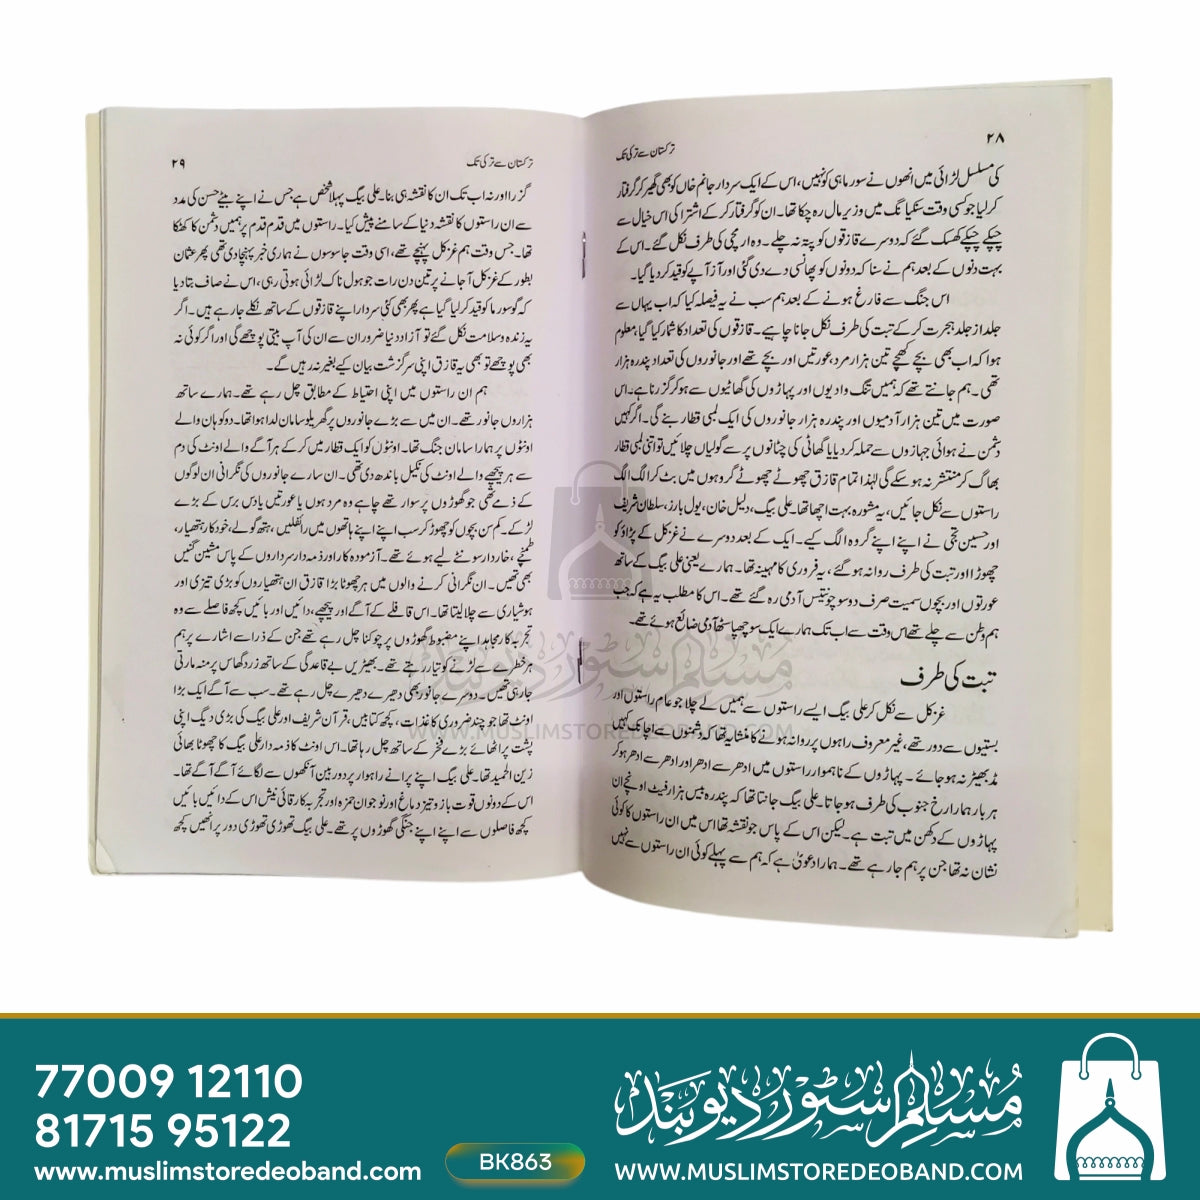 ۲۸
ترکستان سے ترکی تک
کی مسلسل لڑائی میں انھوں نے سورما ہی کو نہیں، اس کے ایک سردار جانم خاں کو بھی گھیر کر گرفتار
کر لیا جو کسی وقت سنکیانگ میں وزیر مال رہ چکا تھا۔ ان کو گرفتار کر کے اشتراکی اس خیال سے
چپکے چپکے کھسک گئے کہ دوسرے قازقوں کو پتہ نہ چلے۔ وہ ارمچی کی طرف نکل گئے۔ اس کے
بہت دنوں کے بعد ہم نے سنا کہ دونوں کو پھانسی دے دی گئی اور آز آپے کو قید کر دیا گیا۔
اس جنگ سے فارغ ہونے کے بعد ہم سب نے یہ فیصلہ کیا کہ اب یہاں سے
جلد از جلد ہجرت کر کے تبت کی طرف نکل جانا چاہیے۔ قازقوں کی تعداد کا شمار کیا گیا، معلوم
ہوا کہ اب بھی بچے کھچے تین ہزار مرد، عورتیں اور بچے تھے اور جانوروں کی تعداد پندرہ ہزار
تھی۔ ہم جانتے تھے کہ ہمیں تنگ وادیوں اور پہاڑوں کی گھاٹیوں سے ہو کر گزرنا ہے۔ اس
صورت میں تین ہزار آدمیوں اور پندرہ ہزار جانوروں کی ایک لمبی قطار بنے گی۔ اگر کہیں
دشمن نے ہوائی جہازوں سے حملہ کر دیا یا گھاٹی کی چٹانوں پر سے گولیاں چلائیں تو اتنی لمبی قطار
بھاگ کر منتشر نہ ہو سکے گی لہٰذا تمام قازق چھوٹے چھوٹے گروہوں میں بٹ کر الگ الگ
راستوں سے نکل جائیں، یہ مشورہ بہت اچھا تھا۔ علی بیگ، دلیل خان، یول بارز، سلطان شریف
اور حسین تجی نے اپنے اپنے گروہ الگ کیے۔ ایک کے بعد دوسرے نے غزکل کے پڑاؤ کو
چھوڑا اور تبت کی طرف روانہ ہو گئے، یہ فروری کا مہینہ تھا۔ ہمارے یعنی علی بیگ کے ساتھ
عورتوں اور بچوں سمیت صرف دو سو چونتیس آدمی رہ گئے تھے۔ اس کا مطلب یہ ہے کہ جب
ہم وطن سے چلے تھے اس وقت سے اب تک ہمارے ایک سو چھیاسٹھ آدمی ضائع ہوئے تھے۔
تبت کی طرف
غزکل سے نکل کر علی بیگ ایسے راستوں سے ہمیں لے چلا جو عام راستوں اور
بستیوں سے دور تھے، غیر معروف راہوں پر روانہ ہونے کا منشا یہ تھا کہ دشمنوں سے اچانک کہیں
مڈبھیڑ نہ ہو جائے۔ پہاڑوں کے ناہموار راستوں میں ادھر سے ادھر اور ادھر سے ادھر ہو کر
ہر بار ہمارا رخ جنوب کی طرف ہو جاتا۔ علی بیگ جانتا تھا کہ پندرہ بیس ہزار فیٹ اونچے ان
پہاڑوں کے دکھن میں تبت ہے۔ لیکن اس کے پاس جو نقشہ تھا اس میں ان راستوں کا کوئی
نشان نہ تھا جن پر ہم جا رہے تھے۔ ہمارا دعویٰ ہے کہ ہم سے پہلے کوئی ان راستوں سے نہیں
ترکستان سے ترکی تک
۲۹
گزرا اور نہ اب تک ان کا نقشہ ہی بنا۔ علی بیگ پہلا شخص ہے جس نے اپنے بیٹے حسن کی مدد
سے ان راستوں کا نقشہ دنیا کے سامنے پیش کیا۔ راستوں میں قدم قدم پر ہمیں دشمن کا کھٹکا
تھا۔ جس وقت ہم غزکل پہنچے تھے، اسی وقت جاسوسوں نے ہماری خبر پہنچا دی تھی پھر عثمان
بطور کے غزکل آ جانے پر تین دن رات جو ہولناک لڑائی ہوتی رہی، اس نے صاف بتا دیا
کہ گو سورما کو قید کر لیا گیا ہے پھر بھی کئی سردار اپنے قازقوں کے ساتھ نکلے جا رہے ہیں۔ اگر
یہ زندہ و سلامت نکل گئے تو آزاد دنیا ضرور ان سے ان کی آپ بیتی پوچھے گی اور اگر کوئی نہ
بھی پوچھے تو بھی یہ قازق اپنی سرگزشت بیان کیے بغیر نہ رہیں گے۔
ہم ان راستوں میں اپنی احتیاط کے مطابق چل رہے تھے۔ ہمارے ساتھ
ہزاروں جانور تھے۔ ان میں سے بڑے جانوروں پر گھریلو سامان لدا ہوا تھا۔ دو کوہان والے
اونٹوں پر ہمارا سامان جنگ تھا۔ اونٹوں کو ایک قطار میں کر کے ہر آگے والے اونٹ کی دم
سے ہر پیچھے والے اونٹ کی نکیل باندھ دی تھی۔ ان سارے جانوروں کی نگرانی ان لوگوں
کے ذمے تھی جو گھوڑوں پر سوار تھے چاہے وہ مرد ہوں یا عورتیں یا دس برس کے بڑے
لڑکے۔ کم سن بچوں کو چھوڑ کر سب اپنے اپنے ہاتھوں میں رائفلیں، ہتھ گولے، خودکار ہتھیار،
طمنچے، خاردار سونٹے لیے ہوئے تھے۔ آزمودہ کار اور ذمہ دار سرداروں کے پاس مشین گنیں
بھی تھیں۔ ان نگرانی کرنے والوں میں ہر چھوٹا بڑا قازق ان ہتھیاروں کو بڑی تیزی اور
ہوشیاری سے چلا لیتا تھا۔ اس قافلے کے آگے اور پیچھے، دائیں اور بائیں کچھ فاصلے سے وہ
تجربہ کار مجاہد اپنے مضبوط گھوڑوں پر چوکنا چل رہے تھے جن کے ذرا سے اشارے پر ہم
ہر خطرے سے لڑنے کو تیار رہتے تھے۔ بھیڑیں بے قاعدگی کے ساتھ زرد گھاس پر منہ مارتی
جا رہی تھیں۔ دوسرے جانور بھی دھیرے دھیرے چل رہے تھے۔ سب سے آگے ایک بڑا
اونٹ تھا جو چند ضروری کاغذات، کچھ کتابیں، قرآن شریف اور علی بیگ کی بڑی دیگ اپنی
پشت پر اٹھائے بڑے فخر کے ساتھ چل رہا تھا۔ اس اونٹ کا ذمہ دار علی بیگ کا چھوٹا بھائی
زین الحمید تھا۔ علی بیگ اپنے پرانے راہوار پر دوربین آنکھوں سے لگائے آگے آگے تھا۔
اس کے دونوں قوت بازو تیز دماغ اور نوجوان حمزہ اور تجربہ کار قائی نیش اس کے دائیں بائیں
کچھ فاصلوں سے اپنے اپنے جنگی گھوڑوں پر تھے۔ علی بیگ تھوڑی تھوڑی دور پر انھیں کچھ
مسلم سٹور دیوبند
WWW.MUSLIMSTOREDEOBAND.COM
77009 12110
81715 95122
www.muslimstoredeoband.com
BK863
مسلم سٹور دیوبند
WWW.MUSLIMSTOREDEOBAND.COM